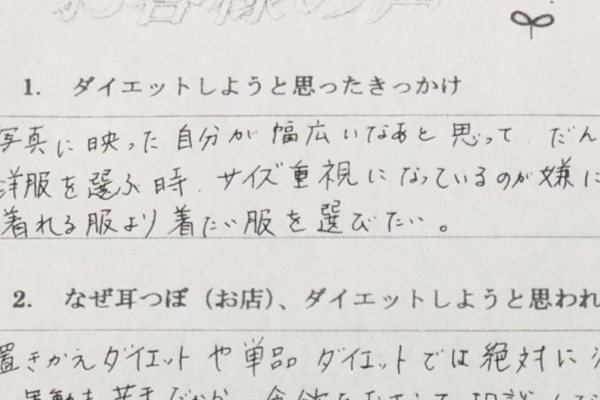 お客様の声
1. ダイエットしようと思ったきっかけ
写真に映った自分が幅広いなあと思って だん
洋服を選ぶ時、サイズ重視になっているのが嫌に
着れる服より着たい服を選びたい。
2. なぜ耳つぼ（お店）、ダイエットしようと思われ
置きかえダイエットや単品ダイエットでは絶対に